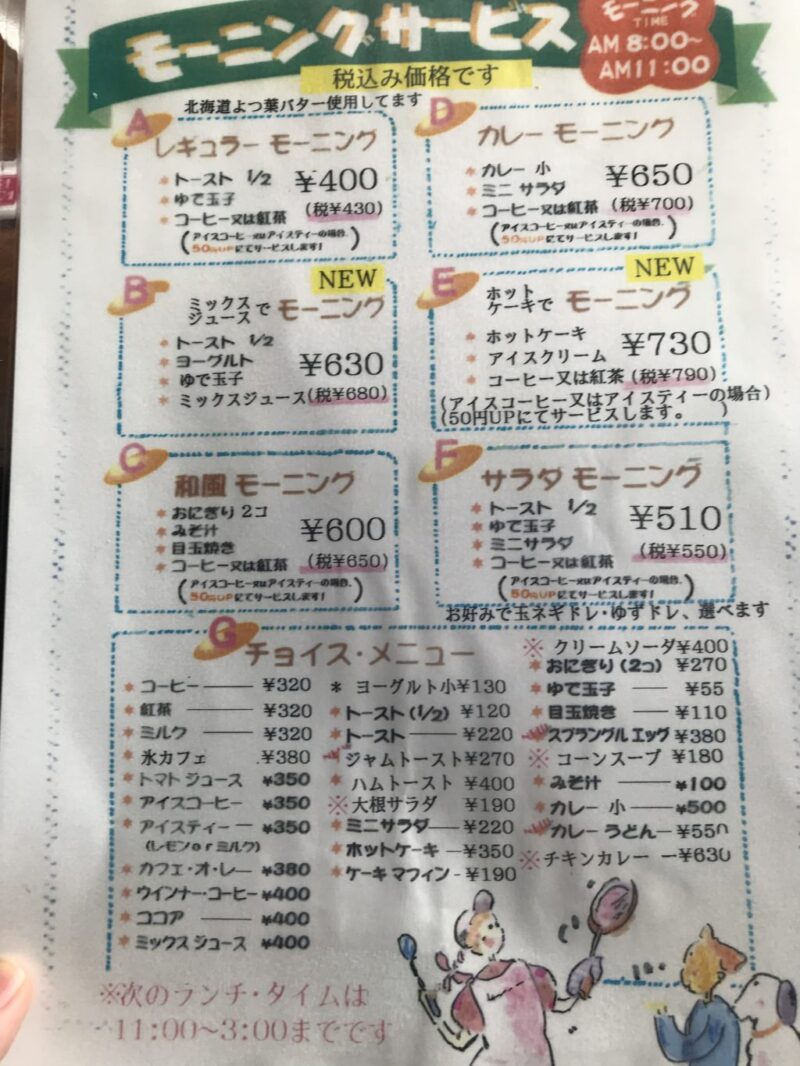 モーニングサービス
モーニング
TIME
AM 8:00～
AM11:00
税込み価格です
北海道よつ葉バター使用してます
A
レギュラー モーニング
トースト 1/2
ゆで玉子
コーヒー又は紅茶
¥400
(税¥430)
(アイスコーヒー又はアイスティーの場合、
50円UPにてサービスします!)
B
NEW
ミックス
ジュースで モーニング
トースト 1/2
ヨーグルト
ゆで玉子
ミックスジュース
¥630
(税¥680)
C
和風 モーニング
おにぎり 2コ
みそ汁
目玉焼き
コーヒー又は紅茶
¥600
(税¥650)
(アイスコーヒー又はアイスティーの場合、
50円UPにてサービスします!)
D
カレー モーニング
カレー 小
ミニ サラダ
コーヒー又は紅茶
¥650
(税¥700)
(アイスコーヒー又はアイスティーの場合、
50円UPにてサービスします!)
E
NEW
ホット
ケーキで モーニング
ホットケーキ
アイスクリーム
コーヒー又は紅茶
¥730
(税¥790)
(アイスコーヒー又はアイスティーの場合)
(50円UPにてサービスします。 )
F
サラダ モーニング
トースト 1/2
ゆで玉子
ミニサラダ
コーヒー又は紅茶
¥510
(税¥550)
(アイスコーヒー又はアイスティーの場合、
50円UPにてサービスします!)
お好みで玉ネギドレ・ゆずドレ、選べます
G
チョイス・メニュー
コーヒー ¥320
紅茶 ¥320
ミルク ¥320
氷カフェ ¥380
トマト ジュース ¥350
アイスコーヒー ¥350
アイスティー ¥350
(レモンorミルク)
カフェ・オ・レ ¥380
ウインナー・コーヒー ¥400
ココア ¥400
ミックス ジュース ¥400
* ヨーグルト小¥130
トースト(1/2) ¥120
トースト ¥220
ジャムトースト¥270
ハムトースト ¥400
※大根サラダ ¥190
ミニサラダ ¥220
ホットケーキ ¥350
ケーキ マフィン - ¥190
※ クリームソーダ¥400
おにぎり(2コ) ¥270
ゆで玉子 ¥55
目玉焼き ¥110
スプラングル エッグ ¥380
※ コーンスープ ¥180
みそ汁 ¥100
カレー 小 ¥500
カレー うどん ¥550
※チキンカレー ー¥630
※次のランチ・タイムは
11:00～3:00までです